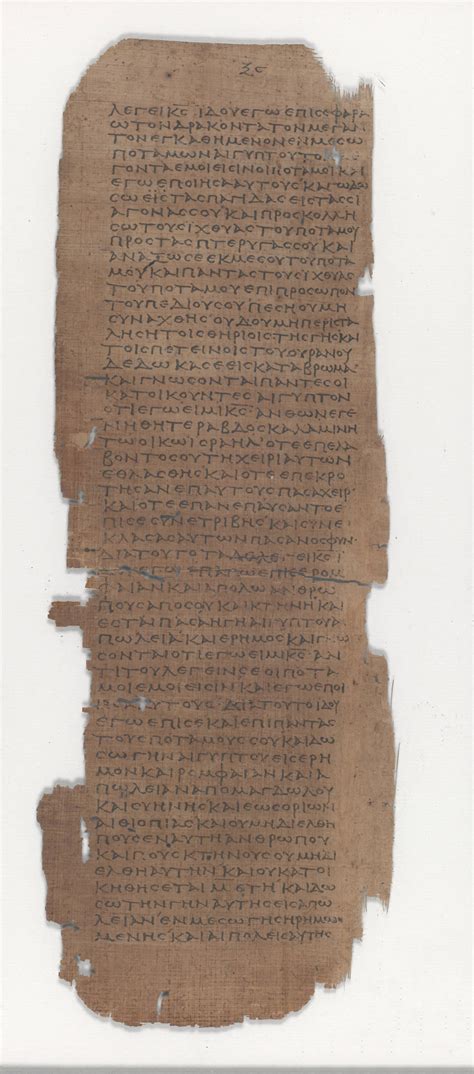 ΞϚ
ΛΕΓΕΙ ΚϹ ΙΔΟΥ ΕΓΩ ΕΠΙ ϹΕ ΦΑΡΑ
Ω ΤΟΝ ΔΡΑΚΟΝΤΑ ΤΟΝ ΜΕΓΑΝ
ΤΟΝ ΕΓΚΑΘΗΜΕΝΟΝ ΕΝ ΜΕϹΩ
ΠΟΤΑΜΩΝ ΑΙΓΥΠΤΟΥ ΤΟΝ
ΓΟΝΤΑ ΕΜΟΙ ΕΙϹΙΝ ΟΙ ΠΟΤΑΜΟΙ ΚΑΙ
ΕΓΩ ΕΠΟΙΗϹΑ ΑΥΤΟΥϹ ΚΑΙ ΙΔΟΥ
ΕΙϹ ΤΑϹ ΠΑΓΙΔΑϹ ΕΙϹ ΤΑϹ ϹΙ
ΑΓΟΝΑϹ ϹΟΥ ΚΑΙ ΠΡΟϹΚΟΛΛΗ
ϹΩ ΤΟΥϹ ΙΧΘΥΑϹ ΤΟΥ ΠΟΤΑΜΟΥ
ΠΡΟϹ ΤΑϹ ΠΤΕΡΥΓΑϹ ϹΟΥ ΚΑΙ
ΑΝΑΞΩ ϹΕ ΕΚ ΜΕϹΟΥ ΤΟΥ ΠΟΤΑ
ΜΟΥ ΚΑΙ ΠΑΝΤΑϹ ΤΟΥϹ ΙΧΘΥΑϹ
ΤΟΥ ΠΟΤΑΜΟΥ ΕΠΙ ΠΡΟϹΩΠΟΝ
ΤΟΥ ΠΕΔΙΟΥ ϹΟΥ ΠΕϹΗ ΟΥ ΜΗ
ϹΥΝΑΧΘΗϹ ΟΥΔ ΟΥ ΜΗ ΠΕΡΙϹΤΑ
ΛΗϹ Η ΤΟΙϹ ΘΗΡΙΟΙϹ ΤΗϹ ΓΗϹ ΚΑΙ
ΤΟΙϹ ΠΕΤΕΙΝΟΙϹ ΤΟΥ ΟΥΡΑΝΟΥ
ΔΕΔΩΚΑ ϹΕ ΕΙϹ ΚΑΤΑΒΡΩΜΑ
ΚΑΙ ΓΝΩϹΟΝΤΑΙ ΠΑΝΤΕϹ ΟΙ
ΚΑΤΟΙΚΟΥΝΤΕϹ ΑΙΓΥΠΤΟΝ
ΟΤΙ ΕΓΩ ΕΙΜΙ ΚϹ ΑΝΘ ΩΝ ΕΓΕ
ΝΗΘΗΤΕ ΡΑΒΔΟϹ ΚΑΛΑΜΙΝΗ
ΤΩ ΟΙΚΩ ΙϹΡΑΗΛ ΟΤΕ ΕΠΕΛΑ
ΒΟΝΤΟ ϹΟΥ ΤΗ ΧΕΙΡΙ ΑΥΤΩΝ
ΕΘΛΑϹΘΗϹ ΚΑΙ ΟΤΕ ΕΠΕΚΡΟ
ΤΗϹΑΝ ΕΠ ΑΥΤΟΥϹ ΠΑϹΑ ΧΕΙΡ
ΚΑΙ ΟΤΕ ΕΠΑΝΕΠΑΥϹΑΝΤΟ Ε
ΠΙ ϹΕ ϹΥΝΕΤΡΙΒΗϹ ΚΑΙ ϹΥΝΕ
ΚΛΑϹΑϹ ΑΥΤΩΝ ΠΑϹΑΝ ΟϹΦΥΝ
ΔΙΑ ΤΟΥΤΟ ΤΑΔΕ ΛΕΓΕΙ ΚϹ Ι
ΕΓΩ ΕΠΑΓΩ ΕΠΙ ϹΕ ΡΟΜ
ΦΑΙΑΝ ΚΑΙ ΑΠΟΛΩ ΑΝΘΡΩ
ΠΟΥϹ ΑΠΟ ϹΟΥ ΚΑΙ ΚΤΗΝΗ ΚΑΙ
ΕϹΤΑΙ ΠΑϹΑ Η ΓΗ ΑΙΓΥΠΤΟΥ Α
ΠΩΛΕΙΑ ΚΑΙ ΕΡΗΜΟϹ ΚΑΙ ΓΝΩ
ϹΟΝΤΑΙ ΟΤΙ ΕΓΩ ΕΙΜΙ ΚϹ ΑΝ
ΤΙ ΤΟΥ ΛΕΓΕΙΝ ϹΕ ΟΙ ΠΟΤΑ
ΜΟΙ ΕΜΟΙ ΕΙϹΙΝ ΚΑΙ ΕΓΩ ΕΠΟΙ
ΑΥΤΟΥϹ ΔΙΑ ΤΟΥΤΟ ΙΔΟΥ
ΕΓΩ ΕΠΙ ϹΕ ΚΑΙ ΕΠΙ ΠΑΝΤΑϹ
ΤΟΥϹ ΠΟΤΑΜΟΥϹ ϹΟΥ ΚΑΙ ΔΩ
ϹΩ ΓΗΝ ΑΙΓΥΠΤΟΥ ΕΙϹ ΕΡΗ
ΜΟΝ ΚΑΙ ΡΟΜΦΑΙΑΝ ΚΑΙ Α
ΠΩΛΕΙΑΝ ΑΠΟ ΜΑΓΔΩΛΟΥ
ΚΑΙ ϹΥΗΝΗϹ ΚΑΙ ΕΩϹ ΟΡΙΩΝ
ΑΙΘΙΟΠΙΑϹ ΚΑΙ ΟΥ ΜΗ ΔΙΕΛΘΗ
ΠΟΥϹ ΕΝ ΑΥΤΗ ΑΝΘΡΩΠΟΥ
ΚΑΙ ΠΟΥϹ ΚΤΗΝΟΥϹ ΟΥ ΜΗ ΔΙ
ΕΛΘΗ ΑΥΤΗΝ ΚΑΙ ΟΥ ΚΑΤΟΙ
ΚΗΘΗϹΕΤΑΙ Μ ΕΤΗ ΚΑΙ ΔΩ
ϹΩ ΤΗΝ ΓΗΝ ΑΥΤΗϹ ΕΙϹ ΑΠΩ
ΛΕΙΑΝ ΕΝ ΜΕϹΩ ΓΗϹ ΗΡΗΜΩ
ΜΕΝΗϹ ΚΑΙ ΑΙ ΠΟΛΕΙϹ ΑΥΤΗϹ